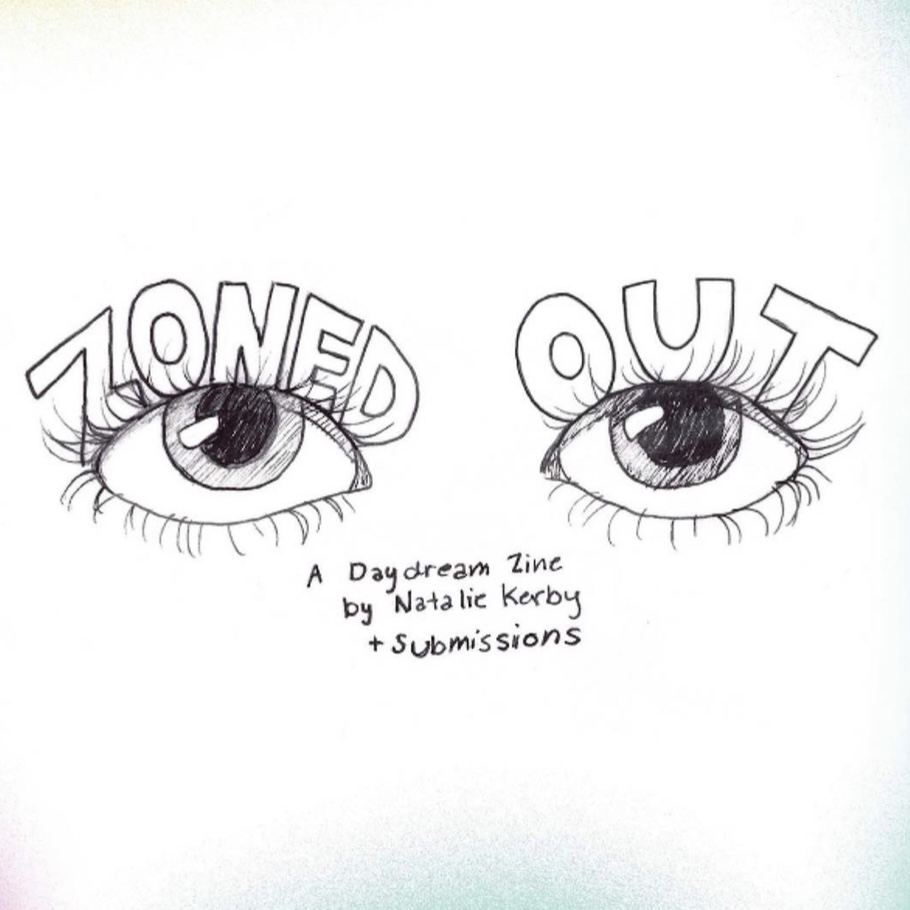 ZONED OUT
A Daydream Zine
by Natalie Kerby
+ Submissions